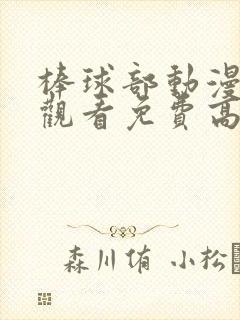 棒球部動漫
觀看免費高
森川侑 小松